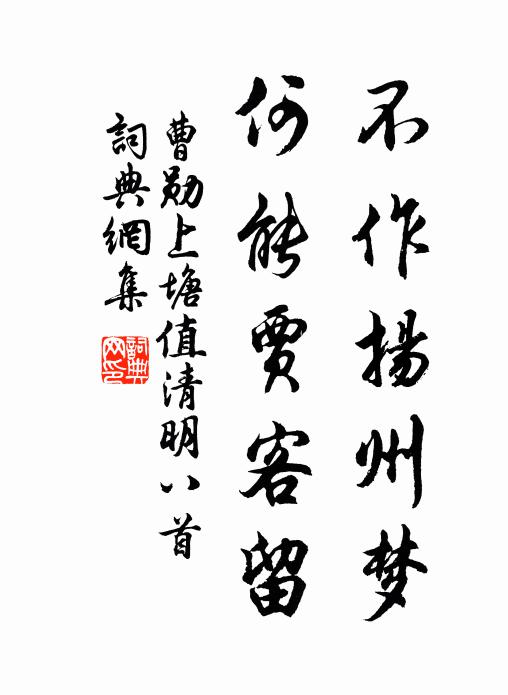 不作揚州梦
何能賈客留
曹勋上塘值清明八首
詞典網集
詞典网印